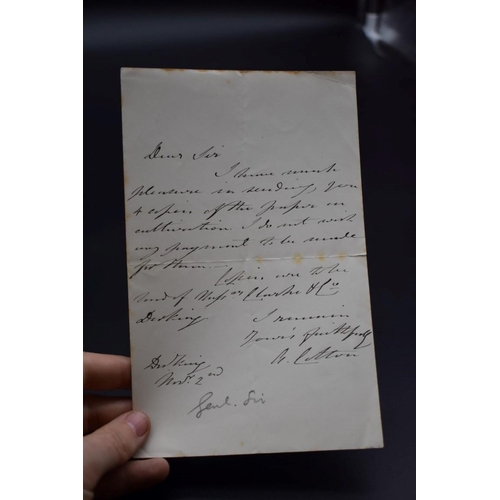 Dear Sir
I have much
pleasure in sending you
4 copies of the paper on
cultivation I do not wish
any payment to be made
for them.
Copies are to be
had of Messrs Clarke & Co
Dorking
I remain
Yours faithfully
Dorking
Novr. 2nd
Genl. Sir